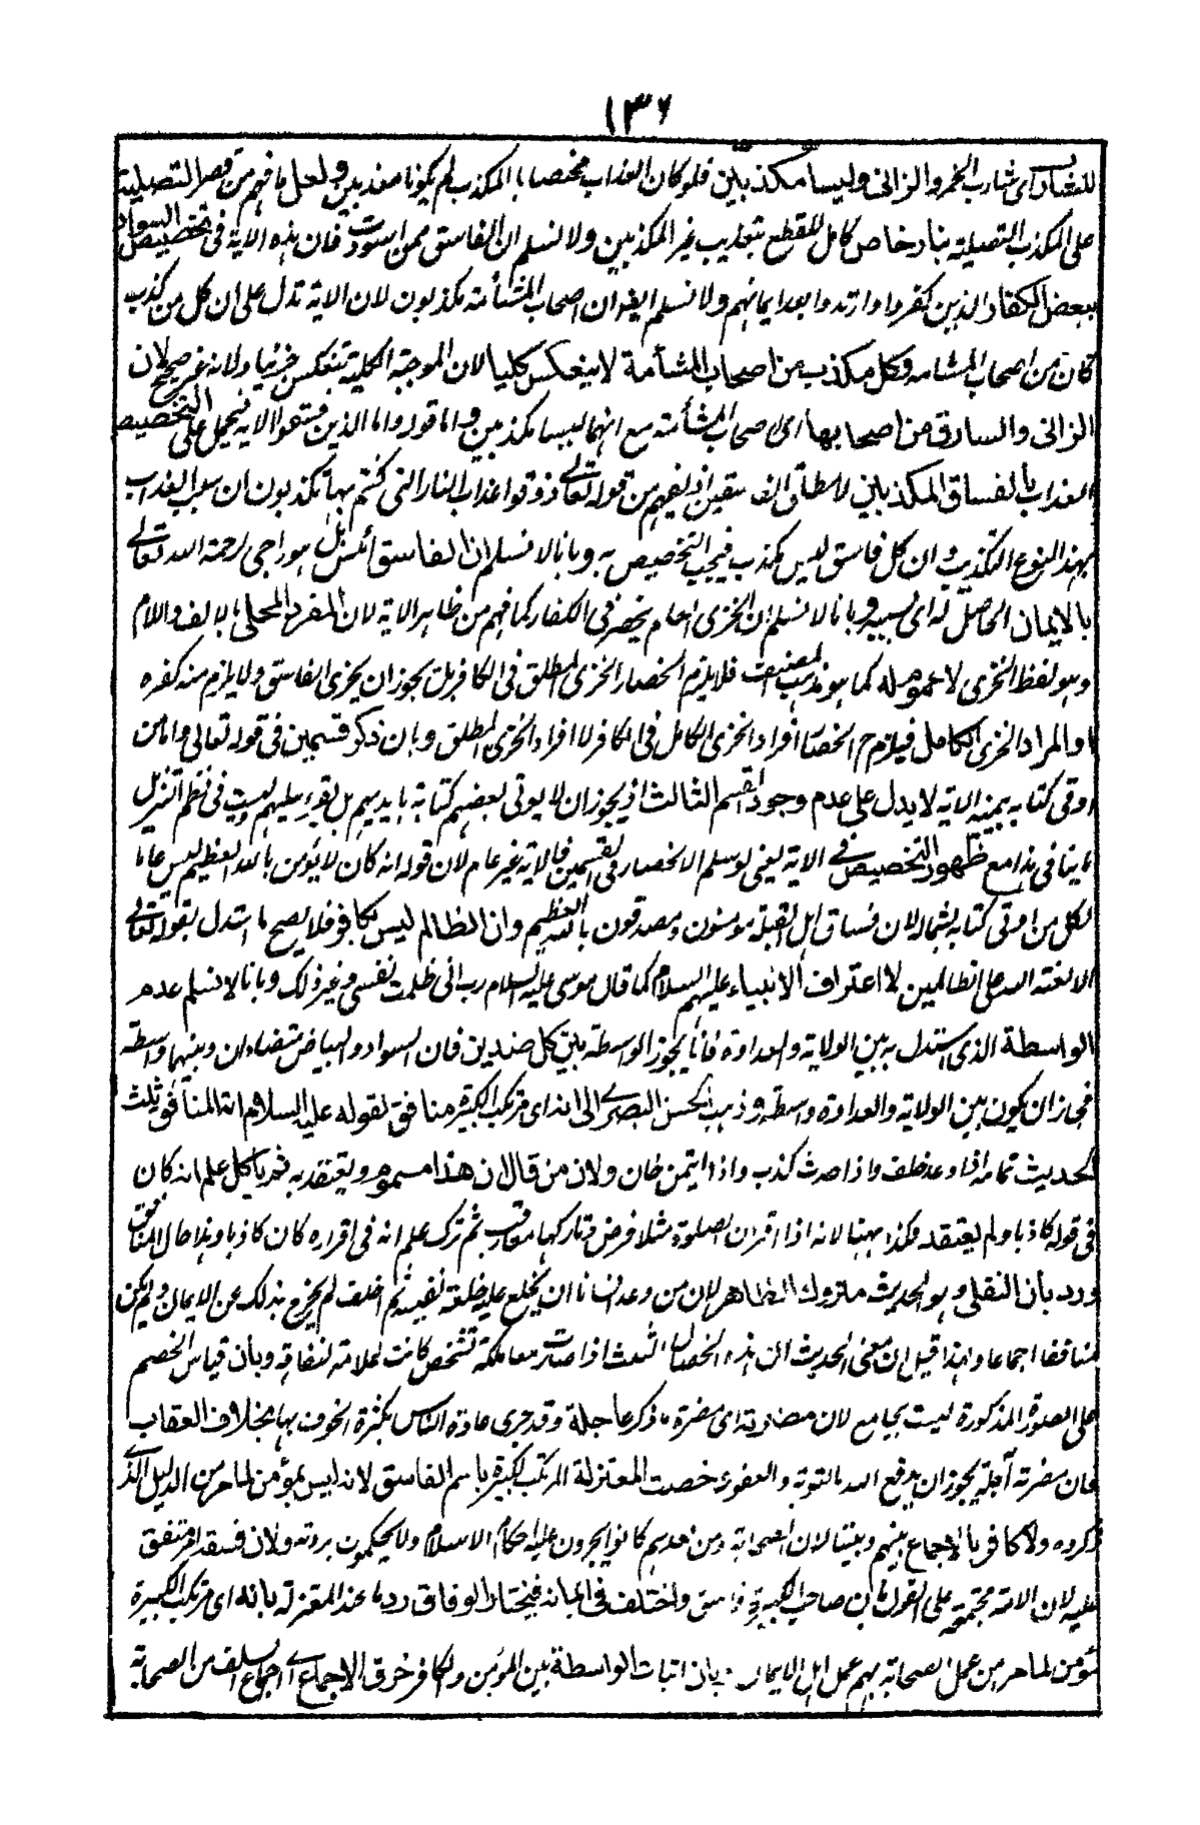 ١٣٦
للشارب اى شارب الخمر والزانى وليسا مكذبين فلو كان العذاب مختصا بالمكذب لم يكونا معذبين ولعل ما فهم من قصر التصلية
على المكذب التصلية بنار خاص كامل للقطع بتعذيب غير المكذبين ولا نسلم ان الفاسق ممن اسودت فان هذه الاية فى تخصيص السواد
ببعض الكفار الذين كفروا وارتدوا بعد ايمانهم ولا نسلم ايضا ان اصحاب المشأمة مكذبون لان الاية تدل على ان كل من كذب
كان من اصحاب المشامه وكل مكذب من اصحاب المشأمة لا ينعكس كليا لان الموجبة الكلية تنعكس جزئيا ولانه غير صحيح لان
الزانى والسارق من اصحابها اى اصحاب المشأمة مع انهما ليسا مكذبين واما قوله واما الذين فسقوا الاية فيحمل على التخصيص
العذاب بالفساق المكذبين لا مطلق الفاسقين اذ يفهم من قوله تعالى ذوقوا عذاب النار التى كنتم بها تكذبون ان سبب العذاب
بهذا النوع التكذيب ان كل فاسق ليس بمكذب فيجب التخصيص به وبانا لا نسلم ان الفاسق ائس بل هو راجى لرحمة الله تعالى
بالايمان الحاصل له اى بسببه وبانا لا نسلم ان الخزى العام ينحصر فى الكفار كما فهم من ظاهر الاية لان المفرد المحلى بالالف واللام
وهو لفظ الخزى لا عموم له كما هو مذهب المصنف فلا يلزم انحصار الخزى المطلق فى الكافر بل يجوز ان يخزى الفاسق ولا يلزم منه كفره
او المراد الخزى الكامل فيلزم ح انحصار افراد الخزى الكامل فى الكافر لا افراد الخزى المطلق وبان ذكر قسمين فى قوله تعالى واما من
اوتى كتابه بيمينه الاية لا يدل على عدم وجود القسم الثالث اذ يجوز ان لا يوتى بعضهم كتابة بايديهم بل يقرء عليهم وليس فى نظم التنزيل
ما ينافى هذا مع ظهور التخصيص فى الاية يعنى لو سلم الانحصار فى القسمين فالاية غير عام لان قوله انه كان لا يؤمن بالله العظيم ليس عاما
لكل من اوتى كتابه بشماله لان فساق اهل القبلة مومنون ومصدقون بالله العظيم وان الظالم ليس بكافر فلا يصح ما استدل بقوله تعالى
الا لعنة الله على الظالمين لا اعتراف الانبياء عليهم السلام كما قال موسى عليه السلام رب انى ظلمت نفسى وغير ذلك وبانا لا نسلم عدم
الواسطة الذى استدل به بين الولاية والعداوة فانا يجوز الواسطة بين كل ضدين فان السواد والبياض متضادان وبينهما واسطة
فجاز ان يكون بين الولاية والعداوة واسطة وذهب الحسن البصرى الى انه اى مرتكب الكبيرة منافق لقوله عليه السلام اية المنافق ثلث
الحديث تمامه اذا وعد خلف واذا حدث كذب واذا ايتمن خان ولان من قال ان هذا مسموم ويعتقد به ثم ياكل علم انه كان
فى قوله كاذبا ولم يعتقد فكذا ههنا لانه اذا اقر ان الصلوة مثلا فرض وتاركها معاقب ثم ترك علم انه فى اقراره كان كاذبا وهذا حال المنافق
ورد بأن النقلى وهو الحديث متروك الظاهر لان من وعد انسانا ان يخلع عليه خلعة نفيسة ثم اخلف لم يخرج بذلك عن الايمان ولم يكن
منافقا اجماعا ولهذا قيل ان معنى الحديث ان هذه الخصال الثلث اذا صارت معا ملكة تشخص كانت لعلامة لنفاقه وبان قياس الخصم
على الصورة المذكورة ليست بجامع لان مضارته اى مضرة ما ذكر عاجلة وقد جرى عادة الناس بكثرة الخوف بها بخلاف العقاب
فان مضرته آجلة يجوز ان يدفع الله بالتوبة والعفو وخصت المعتزلة المرتكب الكبيرة باسم الفاسق لانه ليس بمؤمن لما مر من الدليل الذى
ذكروه ولا كافر بالاجماع بينهم وبيننا لان الصحابة ومن بعدهم كانوا يجرون عليه احكام الاسلام ولا يحكمون بردته ولان فسقه امر متفق
عليه لان الامة مجتمعة على القول بان صاحب الكبيرة فاسق واختلف فى ايمانه فيختار الوفاق رد ما عند المعتزلة بانه اى مرتكب الكبيرة
مؤمن لما مر من عمل الصحابة بهم عمل اهل الايمان وبان اثبات الواسطة بين المؤمن والكافر خرق الاجماع اى اجماع السلف من الصحابة